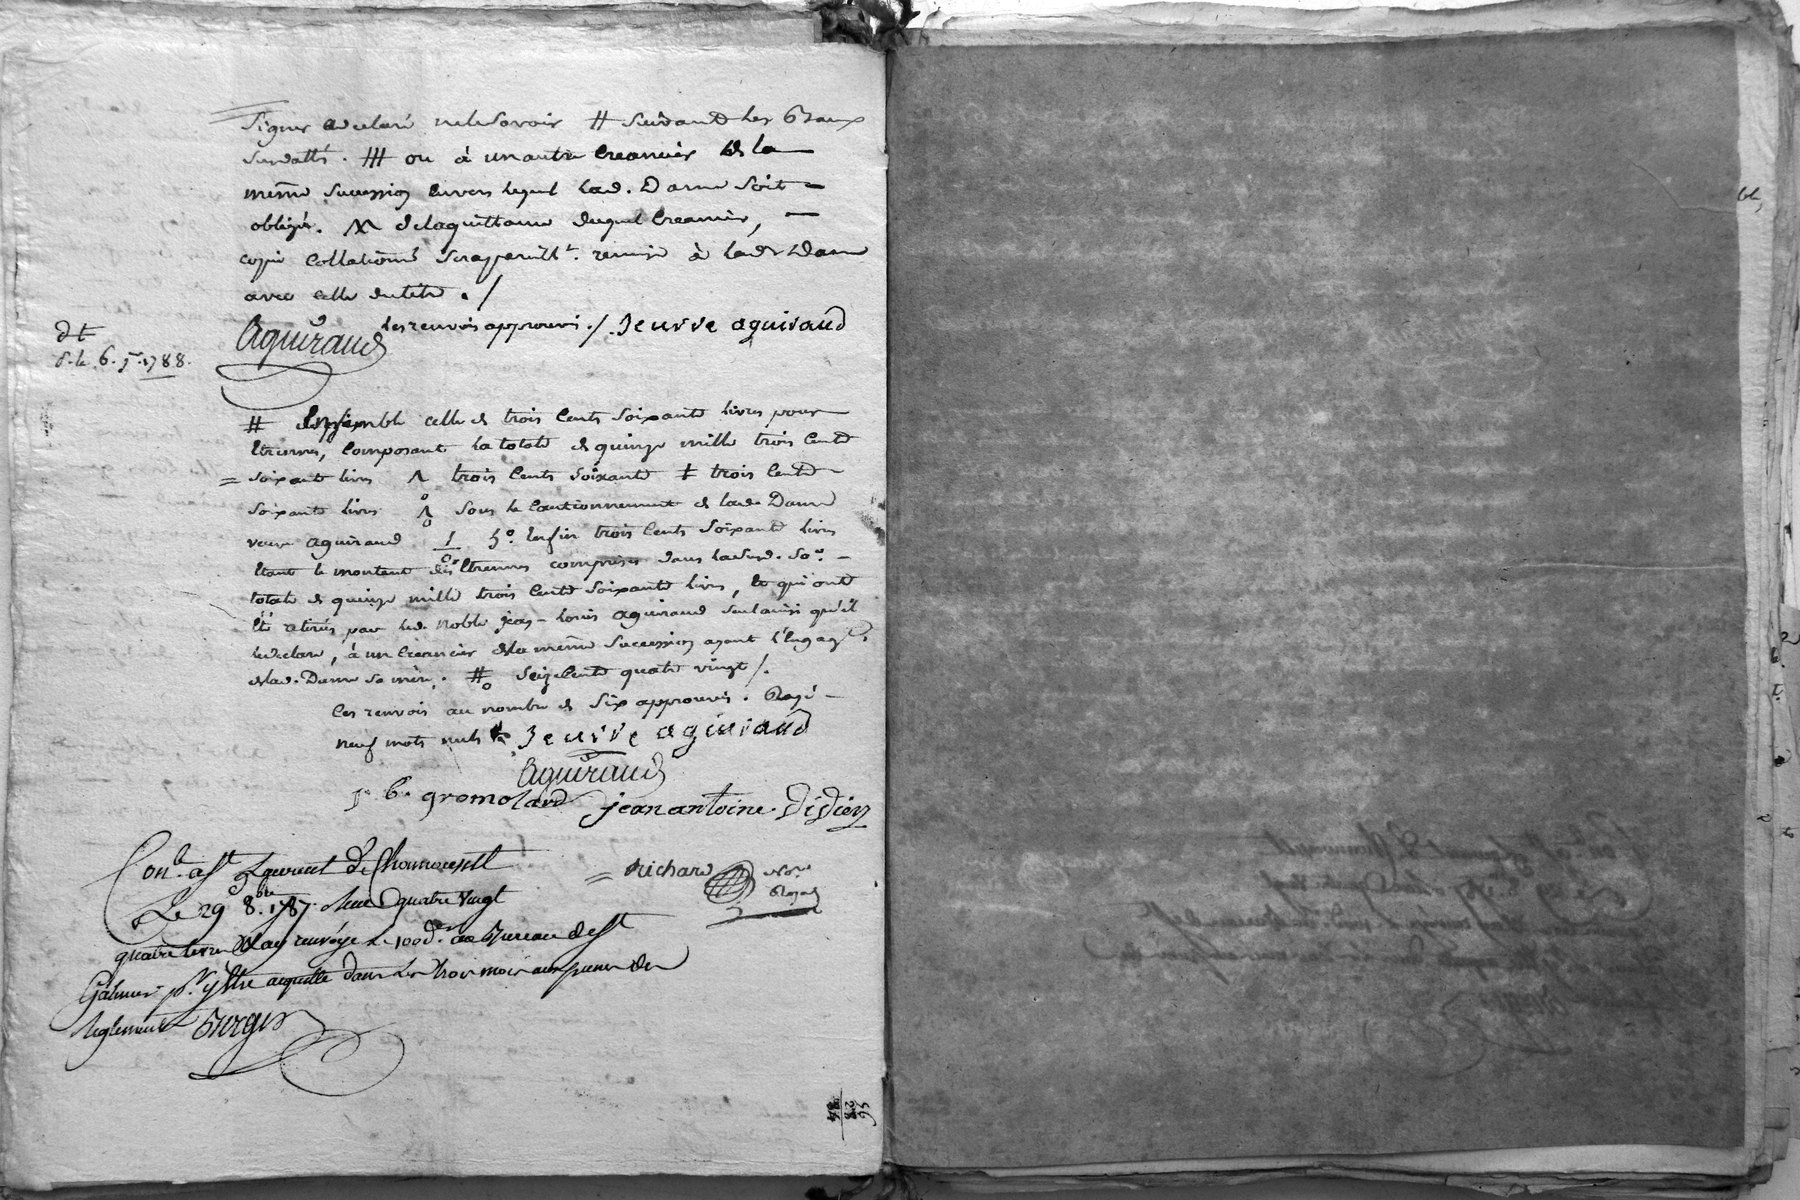 signer a declaré ne le savoir # suivant les
surdatté. ## ou à un autre creancier de la
même succession envers lequel lad. Dame soit
obligée. de laquittance duquel Creancier,
copie Collationné sera remise à lade Dame
avec celle du titre ./
les renvois approuvés ./. jeurre aguiraud
Aguiraud
dt
d. le 6. 7.re 1788.
# Ensemble celle de trois Cents soixante livres pour
Etrennes, Composant la totale de quinze mille trois Cents
= soixante livres ^ trois Cents soixante ‡ trois Cents
soixante livres sous le Cautionnement de lade Dame
veuve aguiraud 5°. Enfin trois Cents soixante livres
Etant le montant des Etrennes comprises dans lasusd. so.e
totale de quinze mille trois Cents soixante livres, et qui ont
Eté retirés par led. noble jean-louis aguiraud seul ainsi qu'il
le declare, à un Creancier de la même succession ayant
de lad. Dame sa mère. # seize Cents quatre vingt /.
Ces renvois au nombre de six approuvés. Rayé
neuf mots nuls jeurre aguiraud
Aguiraud
gromolard jean antoine Didier
Con.lé a st Laurent de Chamousset
Le 29 8.bre 1787. Receu quatre vingt
= Richard No.re Royal
quatre livres renvoyé le 100.d. au Bureau de st
Galmier p.r y être acquitté dans les trois mois aux peines des
Reglements Burgin
56
28
84